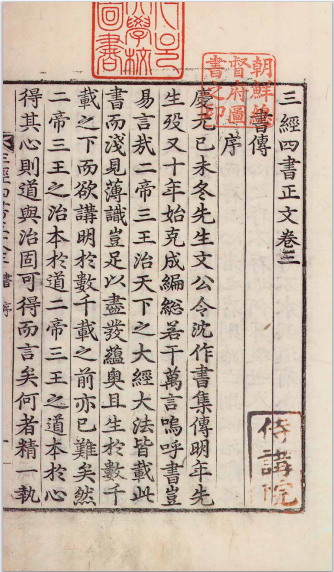 學校
圖書
朝鮮總
督府圖
書之印
三經四書正文卷三
書傳
序
慶元己未冬先生文公令沈作書集傳明年先
生歿又十年始克成編総若干萬言嗚呼書豈
易言哉二帝三王治天下之大經大法皆載此
書而淺見薄識豈足以盡發蘊奥且生於數千
載之下而欲講明於數千載之前亦已難矣然
二帝三王之治本於道二帝三王之道本於心
得其心則道與治固可得而言矣何者精一執
侍講院